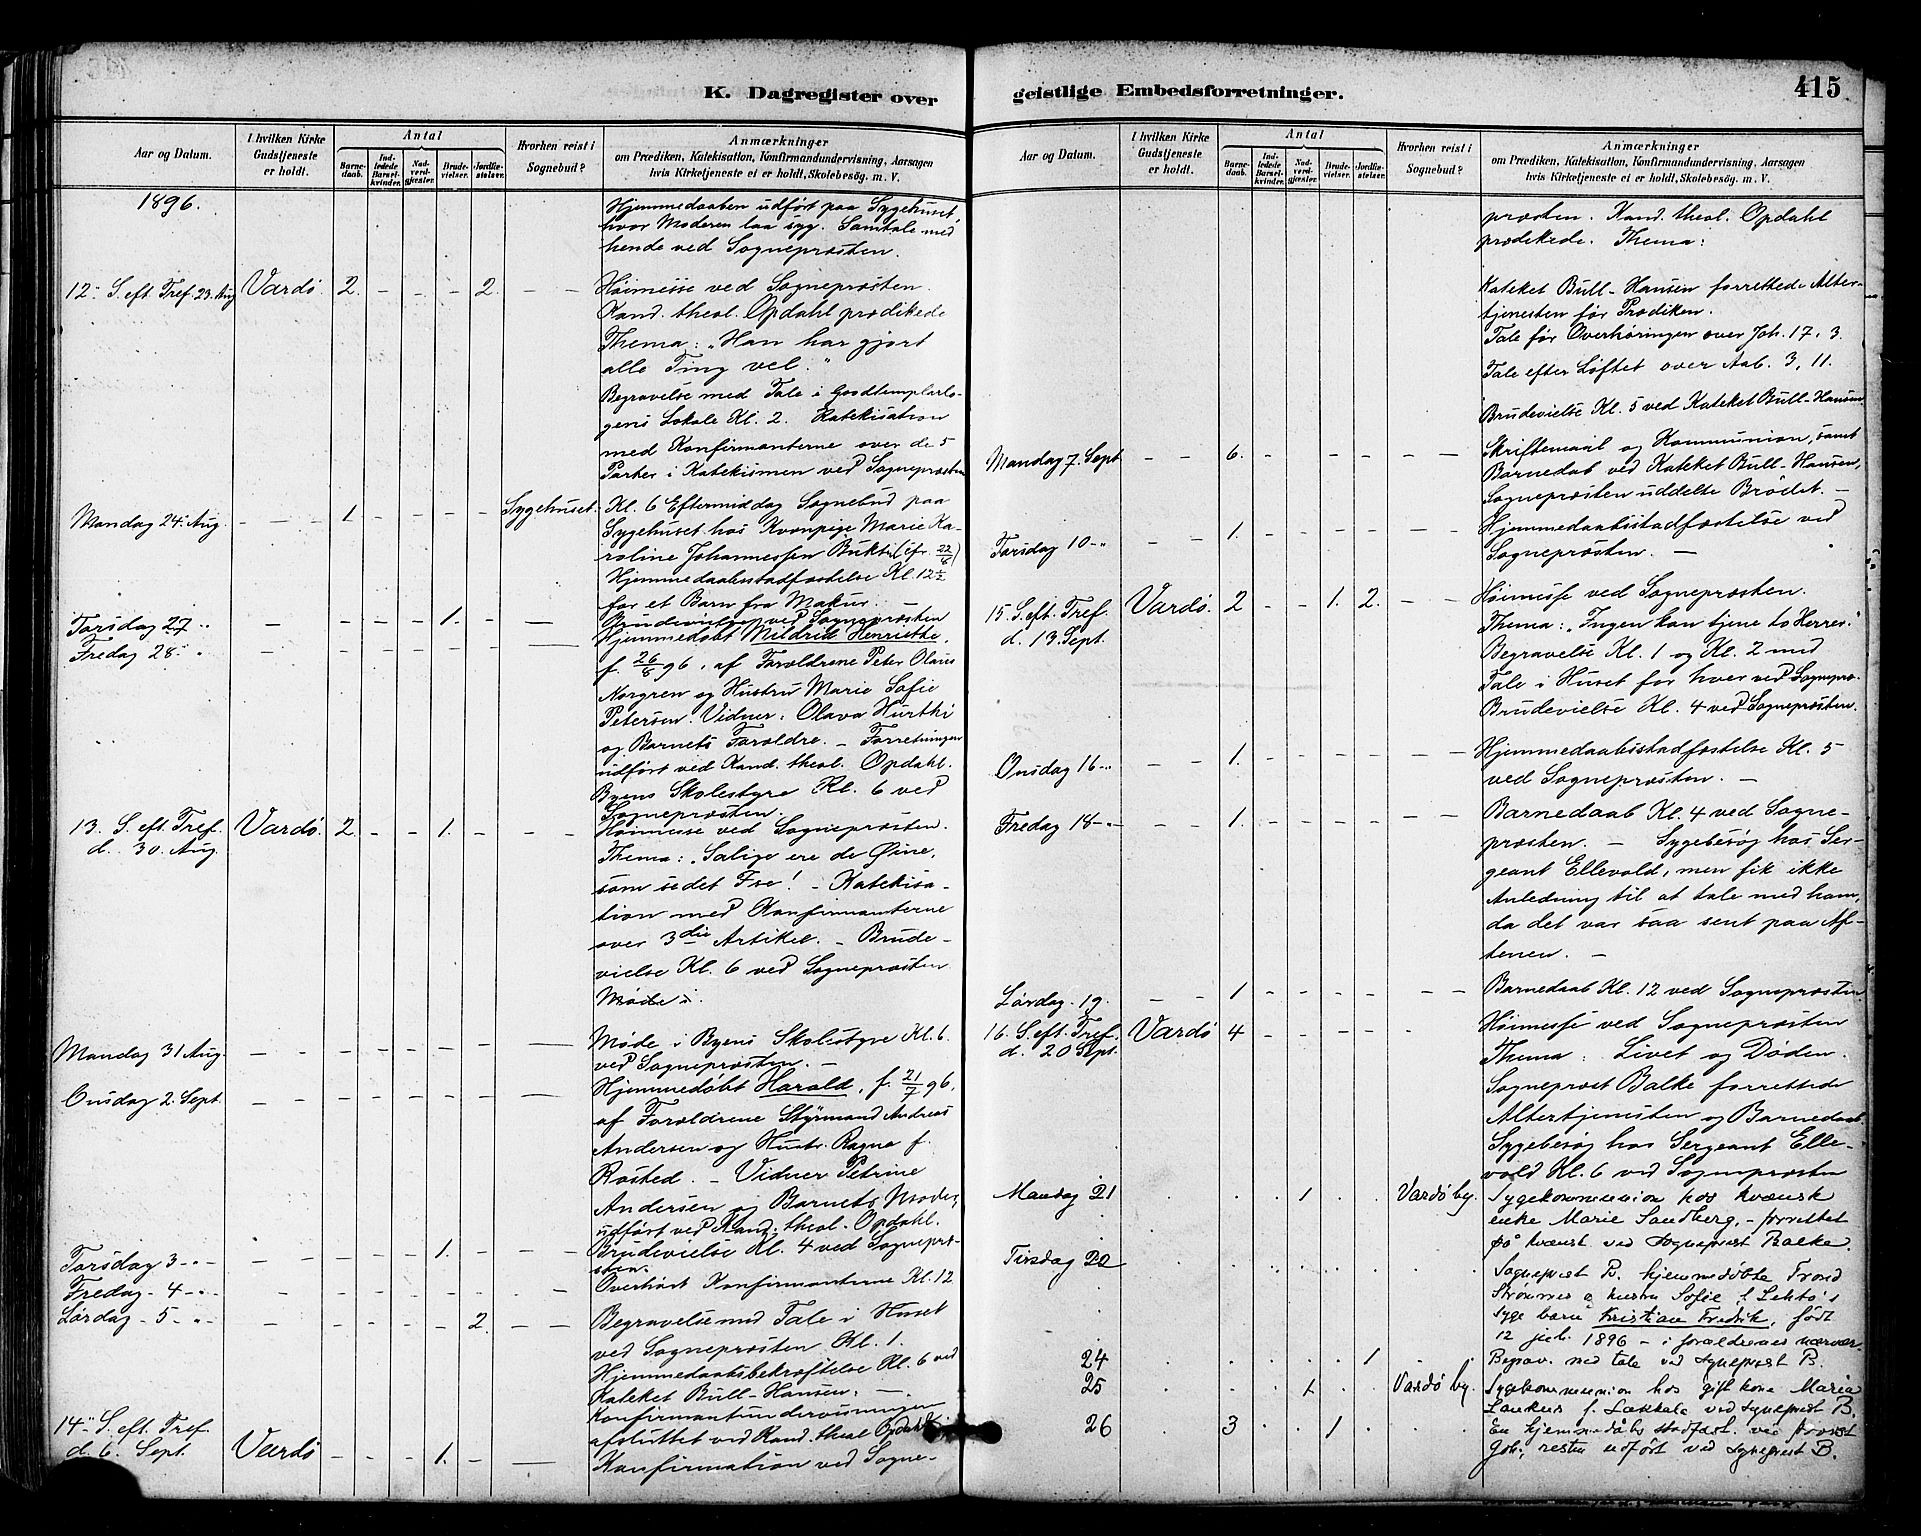 K. Dagregister over
Aar og Datum.
I hvilken Kirke
Gudstjeneste
er holdt.
Antal
Barne-
daab.
Ind-
ledede
Barsel-
kvinder.
Nad-
verd-
gjæster.
Brude-
vielser.
Jordfæ-
stelser.
Hvorhen reist i
Sognebud?
Anmærkninger
om Prædiken, Katekisation, Konfirmandundervisning, Aarsagen
hvis Kirketjeneste ei er holdt, Skolebesøg. m. V.
1896.
Hjemmedaaben udført paa Sygehuset,
hvor Moderen laa syg. Samtale med
hende ved Sognepræsten.
12. S. eft. Tref. 23. Aug Vardø. 2. - - - 2. - - Høimesse ved Sognepræsten.
Kand. theol. Opdahl prædikede
Thema: "Han har gjort
alle Ting vel."
Begravelse med Tale i Goodtemplarlo-
gens Lokale Kl. 2. Katekisation
med Konfirmanterne over de 5
Parter i Katekismen ved Sognepræsten
Mandag 24. Aug. - - - 1. - - - - Sygehuset. Kl. 6 Eftermiddag Sognebud paa
Sygehuset hos Kvænpige Marie Ka-
roline Johannessen Bukti (cfr. 22/8)
Hjemmedaabsstadfæstelse Kl. 12½
for et Barn fra Makur. -
Torsdag 27 " - - - - 1. - - Brudevielse ved Sognepræsten
Fredag 28 " - - - - - - - Hjemmedøbt Mildrid Henriette,
f. 26/8 96, af Forældrene Peter Olaus
Norgren og Hustru Marie Sofie
Petersen. Vidner: Olava Hurthi
og Barnets Forældre. - Forretningen
udført ved Kand. theol. Opdahl.
Byens Skolestyre Kl. 6 ved
Sognepræsten.
13. S. eft. Tref. Vardø. 2. - - 1. - - - Høimesse ved Sognepræsten.
d. 30. Aug. Thema: "Salige ere de Øine,
som se det I se! - Katekisa-
tion med Konfirmanterne
over 3die Artikel. - Brude-
vielse Kl. 6 ved Sognepræsten
Møde i.
Mandag 31 Aug. - - - - - - - Møde i Byens Skolestyre Kl. 6.
ved Sognepræsten. -
Onsdag 2. Sept. - - - - - - - Hjemmedøbt Harald, f. 21/7 96,
af Forældrene Styrmand Andreas
Andersen og Hustr. Ragna f.
Røsted. - Vidner Petrine
Andersen og Barnets Moder,
udført ved Kand. theol. Opdahl.
Torsdag 3 - " - - - - - 1. - - Brudevielse Kl. 4 ved Sognepræ-
sten.
Fredag - 4 - " - - - - - - - Overhørt Konfirmanterne Kl. 12
Lørdag - 5 - " - - - - - 2. - - Begravelse med Tale i Huset
ved Sognepræsten Kl. 1.
Hjemmedaabsbekræftelse Kl. 6 ved
Kateket Bull-Hansen. -
Konfirmantundervisningen
afsluttet ved Kand. theol Opdahl.
14. S. eft. Tref.
d. 6. Sept. Vardø - - - 1. - - Konfirmation ved Sogne-
geistlige Embedsforretninger.
415
Aar og Datum.
I hvilken Kirke
Gudstjeneste
er holdt.
Antal
Barne-
daab.
Ind-
ledede
Barsel-
kvinder.
Nad-
verd-
gjæster.
Brude-
vielser.
Jordfæ-
stelser.
Hvorhen reist i
Sognebud?
Anmærkninger
om Prædiken, Katekisation, Konfirmandundervisning, Aarsagen
hvis Kirketjeneste ei er holdt, Skolebesøg. m. V.
præsten. Kand. theol. Opdahl
prædikede. Thema:
Kateket Bull-Hansen forrettede Alter-
tjenesten før Prædiken.
Tale før Overhøringen over Joh. 17. 3.
Tale efter Løftet over Aab. 3, 11.
Brudevielse Kl. 5 ved Kateket Bull-Hansen
Mandag 7. Sept - - 6. - - - - - - Skriftemaal og Kommunion, samt
Barnedab ved Kateket Bull-Hansen,
Sognepræsten uddelte Brødet. -
Torsdag 10 - " - - 1. - - - - - - Hjemmedaabsstadfæstelse ved
Sognepræsten. -
15. S. eft. Tref. Vardø. 2 - - 1. 2. - - Høimesse ved Sognepræsten.
d. 13. Sept. Thema: "Ingen kan tjene to Herrer."
Begravelse Kl. 1 og Kl. 2 med
Tale i Huset for hver ved Sognepræ.
Brudevielse Kl. 4 ved Sognepræsten.
Onsdag 16 - " - - 1. - - - - - - Hjemmedaabsstadfæstelse Kl. 5
ved Sognepræsten. -
Fredag 18 - " - - 1. - - - - - - Barnedaab Kl. 4 ved Sogne-
præsten. - Sygebesøg hos Ser-
geant Ellevold, men fik ikke
Anledning til at tale med ham,
da det var saa sent paa Af-
tenen. -
Lørdag - 19. - - 1 - - - - - - Barnedaab Kl. 12 ved Sognepræsten
16. S. eft. Tref. Vardø 4 - - - - - Høimesse ved Sognepræsten
d. 20 Sept. Thema: Livet og Døden.
Sogneprest Balke forrettede
Altertjenesten og Barnedaab.
Sygebesøg hos Sergeant Elle-
vold Kl. 6 ved Sognepræsten
Mandag 21 . . 1 . . Vardø by. Sygekommunion hos kvænsk
enke Marie Sandberg, - forrettet
på kvænsk ved Sogneprest Balke.
Tirsdag 22 . . . . . . Sogneprest B. hjemmedøbte Trond
Strømnes o hustru Sofie f. Lehto's
syge barn Kristian Fredrik, født
12 juli 1896 - i forældrenes nærvær.
24 . . . . . 1 . Begrav. med tale ved sogneprest B.
25 . . . 1 . . Vardø by. Sygekommunion hos gift kone Maria
Laukus f. Lakkala ved sogneprest B.
26 3 . . 1 . En hjemmedåbs stadfæst. ved provst
Gjøl; resten udført ved sogneprest B.